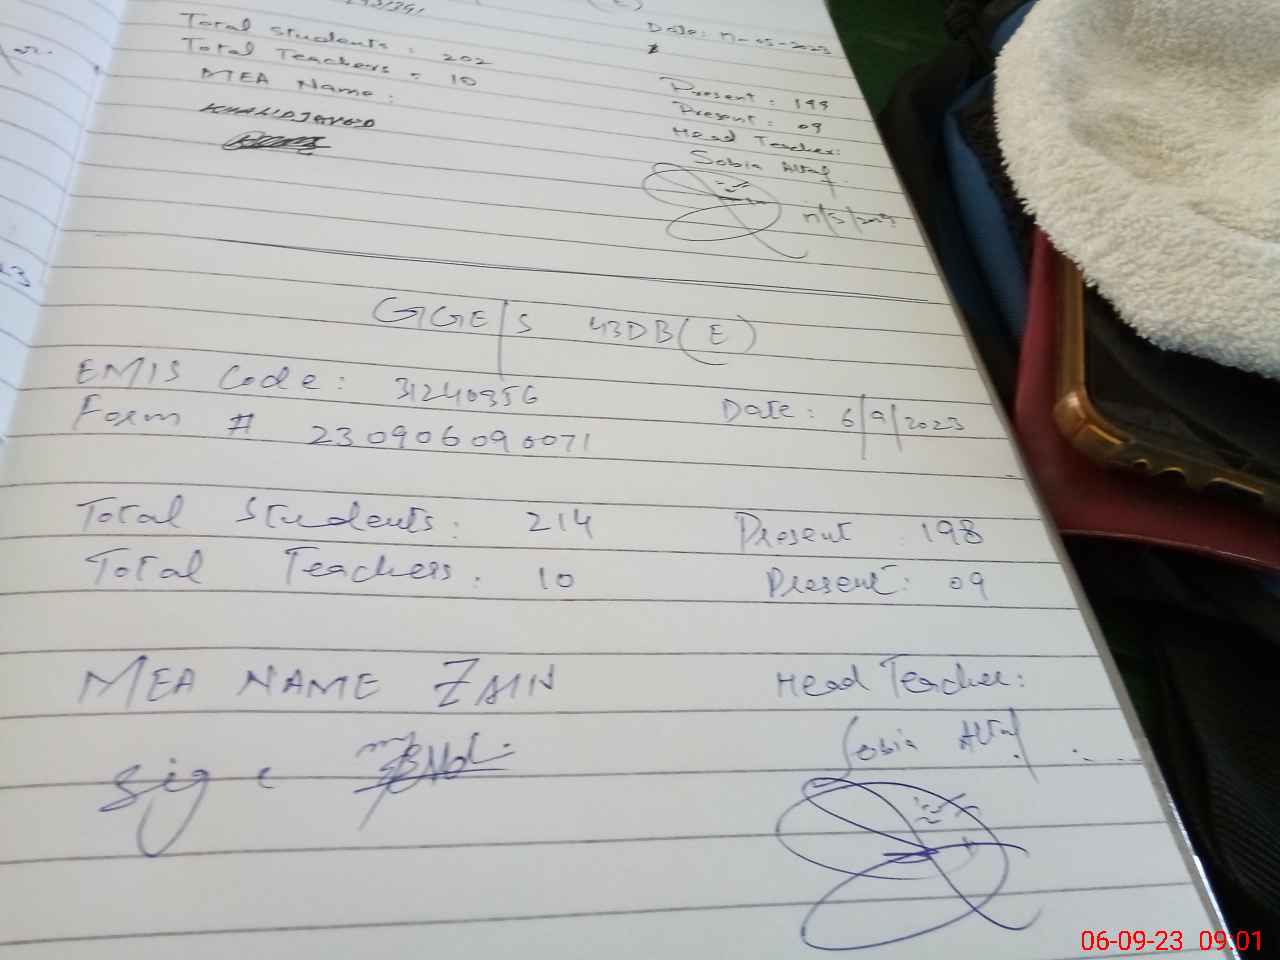 Total Students: 202
Total Teachers = 10
MEA Name:
KHALID JAVED
Date: 11-05-2023
Present: 198
Present: 09
Head Teacher:
Sobia Altaf
11/5/2023
GGE/S 43DB(E)
EMIS Code: 31240356
Date: 6/9/2023
Form # 230906090071
Total Students: 214 Present: 198
Total Teachers: 10 Present: 09
MEA NAME ZAIN Head Teacher:
Sig: Sobia Altaf
06-09-23 09:01